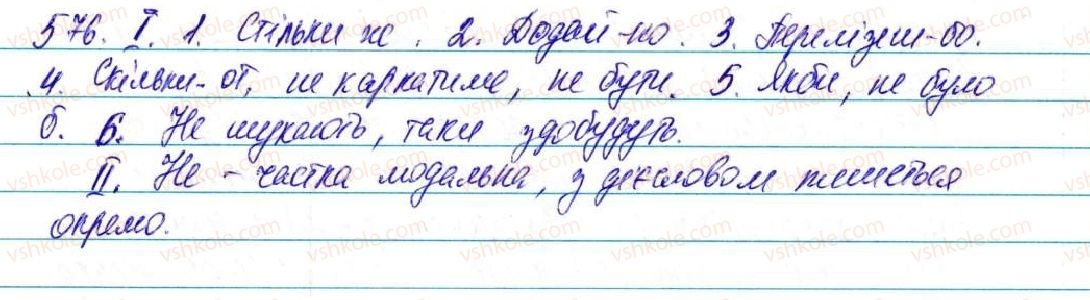 576. I. 1. Стільки ж. 2. Додай-но. 3. Перелізеш-бо.
4. Скільки-от, не каркатиме, не бути. 5. Якби, не було
б. 6. Не шукають, таки здобудуть.
II. Не - частка модальна, з дієсловом пишеться
окремо.